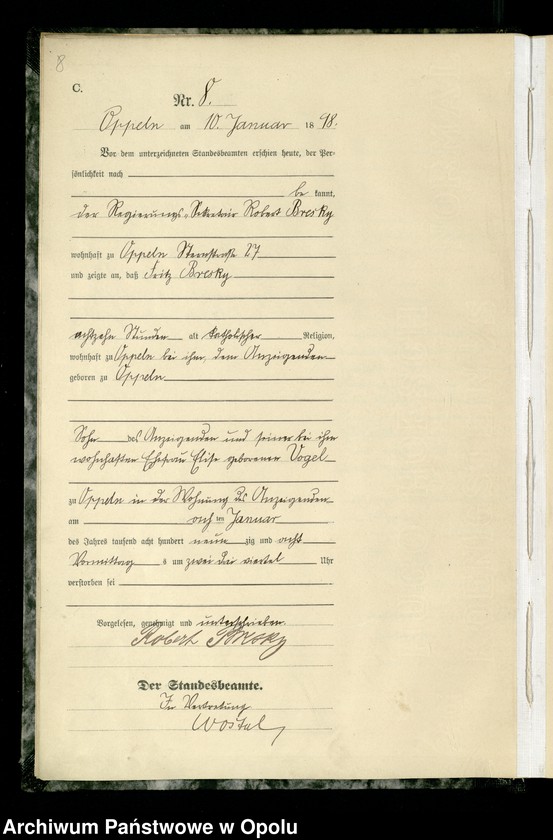 8
C.
Nr. 8.
Oppeln am 10. Januar 1898.
Vor dem unterzeichneten Standesbeamten erschien heute, der Per-
sönlichkeit nach
be kannt,
der Regierungs-Sekretair Robert Bresky
wohnhaft zu Oppeln Sternstraße 27
und zeigte an, daß Fritz Bresky
achtzehn Stunden alt katholischer Religion,
wohnhaft zu Oppeln bei ihm, dem Anzeigenden
geboren zu Oppeln
Sohn des Anzeigenden und seiner bei ihm
wohnhaften Ehefrau Elise geborenen Vogel
zu Oppeln in der Wohnung des Anzeigenden
am ten Januar
des Jahres tausend acht hundert neun zig und acht
Vormittag s um zwei drei viertel Uhr
verstorben sei
Vorgelesen, genehmigt und unterschrieben
Robert Bresky
Der Standesbeamte.
In Vertretung
Wostal
Archiwum Państwowe w Opolu